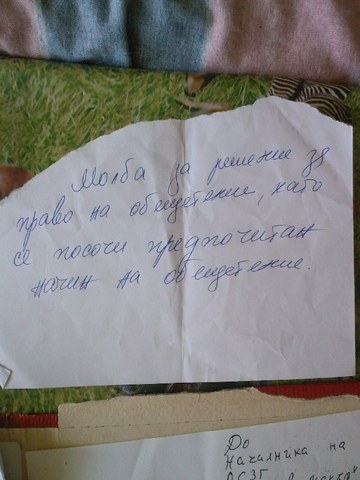 Молба за решение за
право на обещетение, като
се посочи предпочитан
начин на обещетение.
До
Началника на